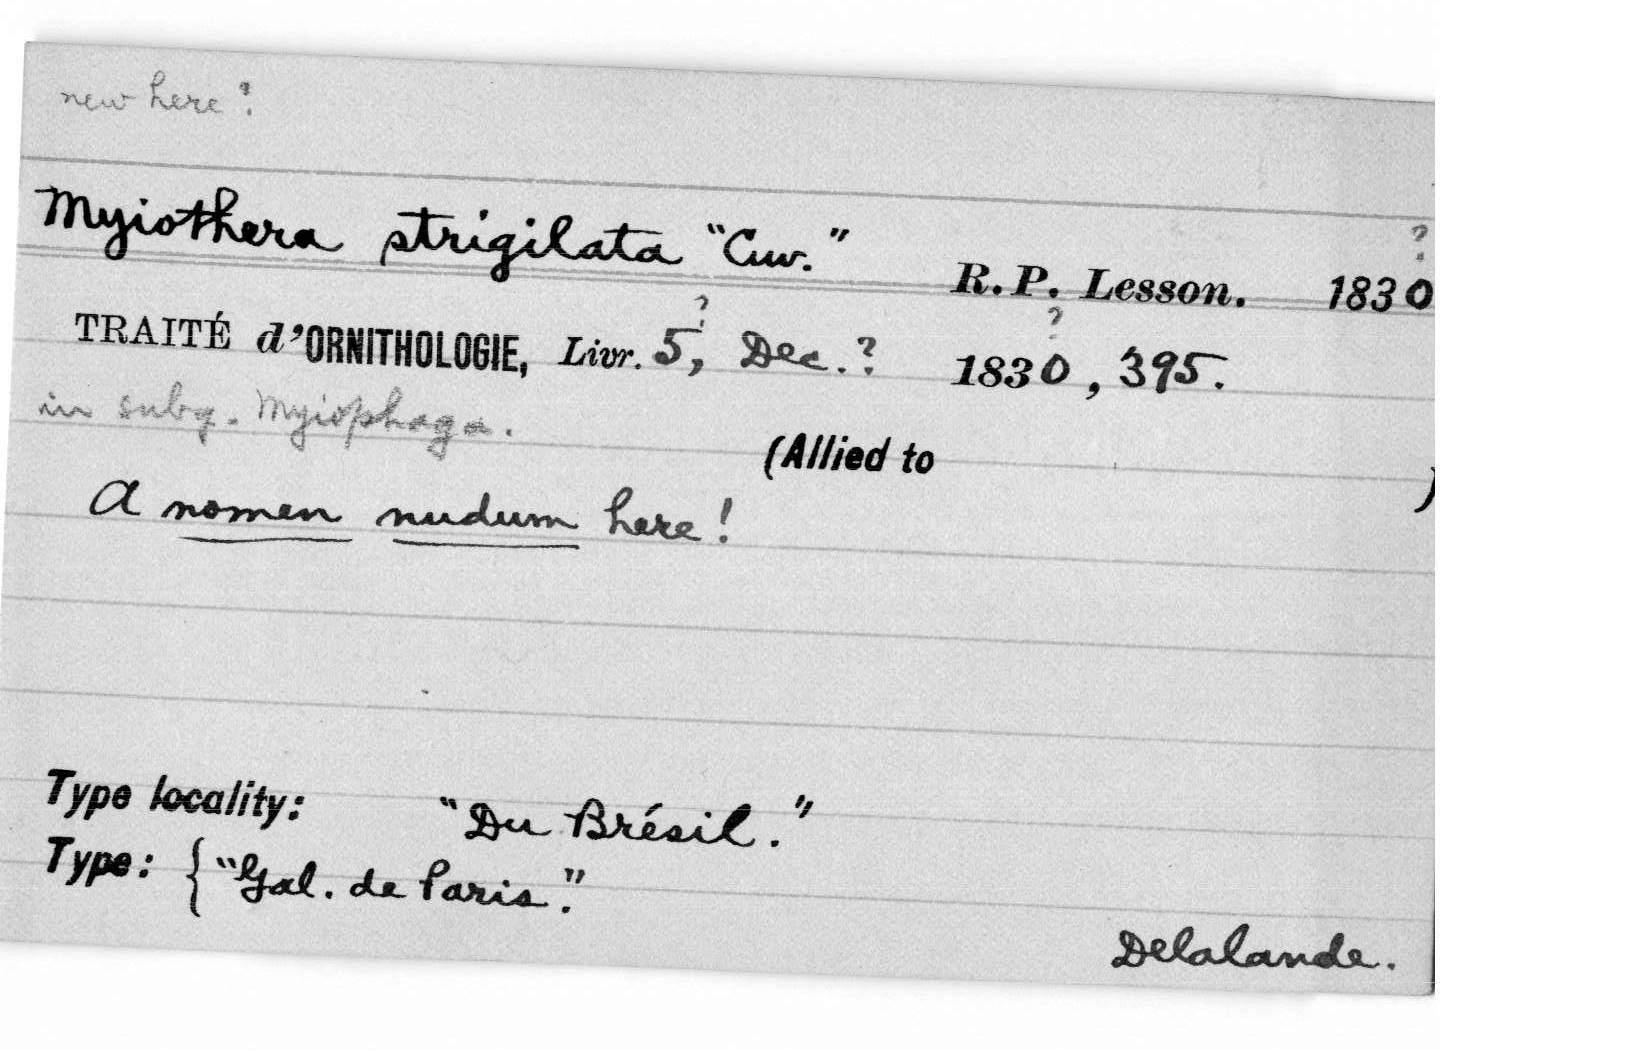 new here?
Myiothera strigilata "Cuv." R. P. Lesson. 1830?
TRAITÉ d'ORNITHOLOGIE, Livr. 5?, Dec.? 1830?, 395.
in subg. Myiophaga.
(Allied to )
A nomen nudum here!
Type locality: "Du Brésil."
Type: {"Gal. de Paris."
Delalande.